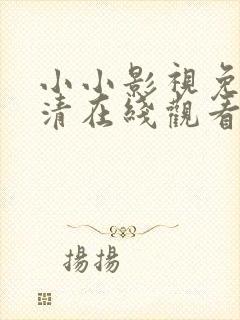 小小影視免
清在綫觀看
揚揚